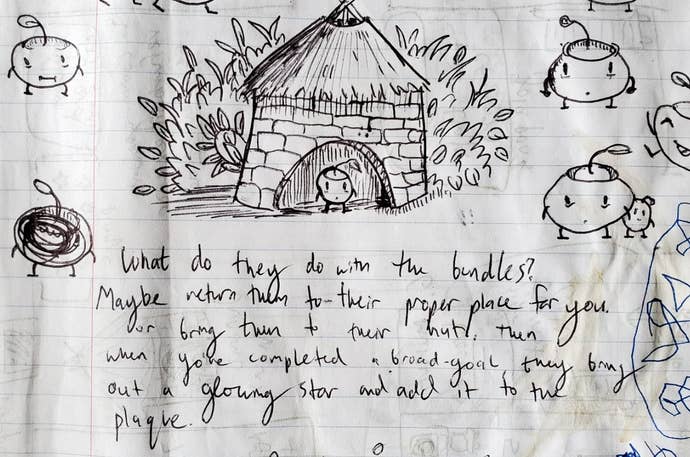 What do they do with the bundles?
Maybe return them to their proper place for you.
or bring them to their hut. Then
when you've completed a broad-goal they bring
out a glowing star and add it to the
plaque.